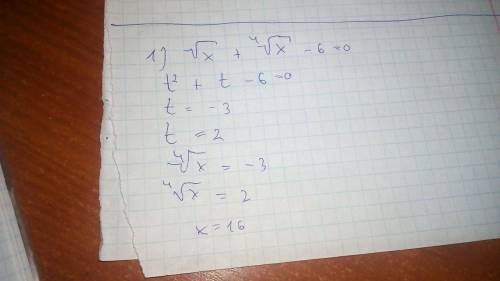 1) √x + ⁴√x - 6 = 0
t² + t - 6 = 0
t = -3
t = 2
⁴√x = -3
⁴√x = 2
x = 16